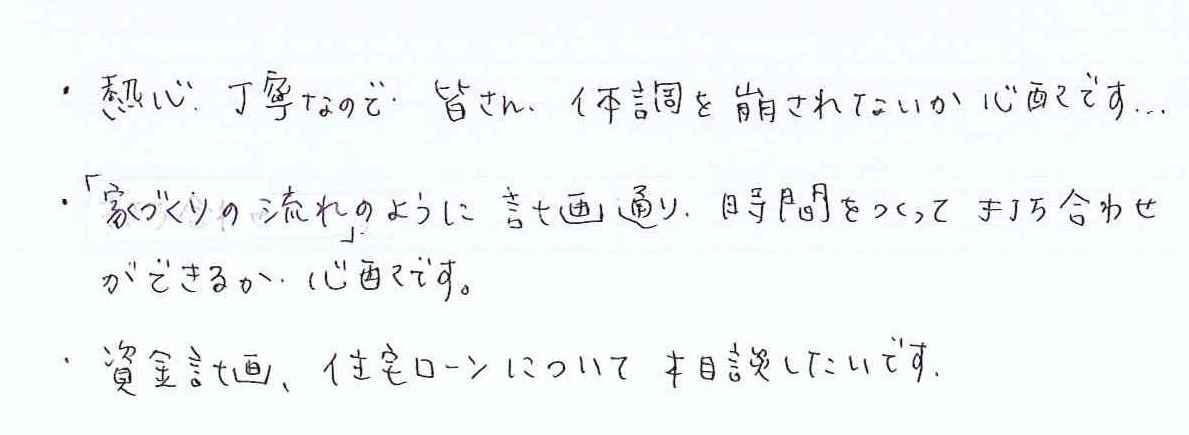 ・熱心、丁寧なので、皆さん、体調を崩されてないか心配です…
・「家づくりの流れ」のように計画通り、時間をつくって打ち合わせ
ができるか、心配です。
・資金計画、住宅ローンについて相談したいです.